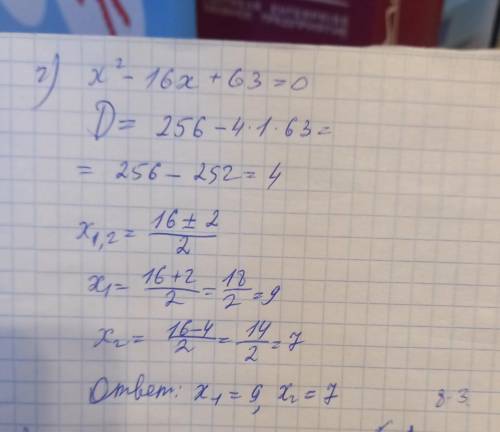 г) x² - 16x + 63 = 0
D = 256 - 4·1·63 =
= 256 - 252 = 4
x₁,₂ = (16 ± 2)/2
x₁ = (16+2)/2 = 18/2 = 9
x₂ = (16-4)/2 = 14/2 = 7
Ответ: x₁ = 9, x₂ = 7